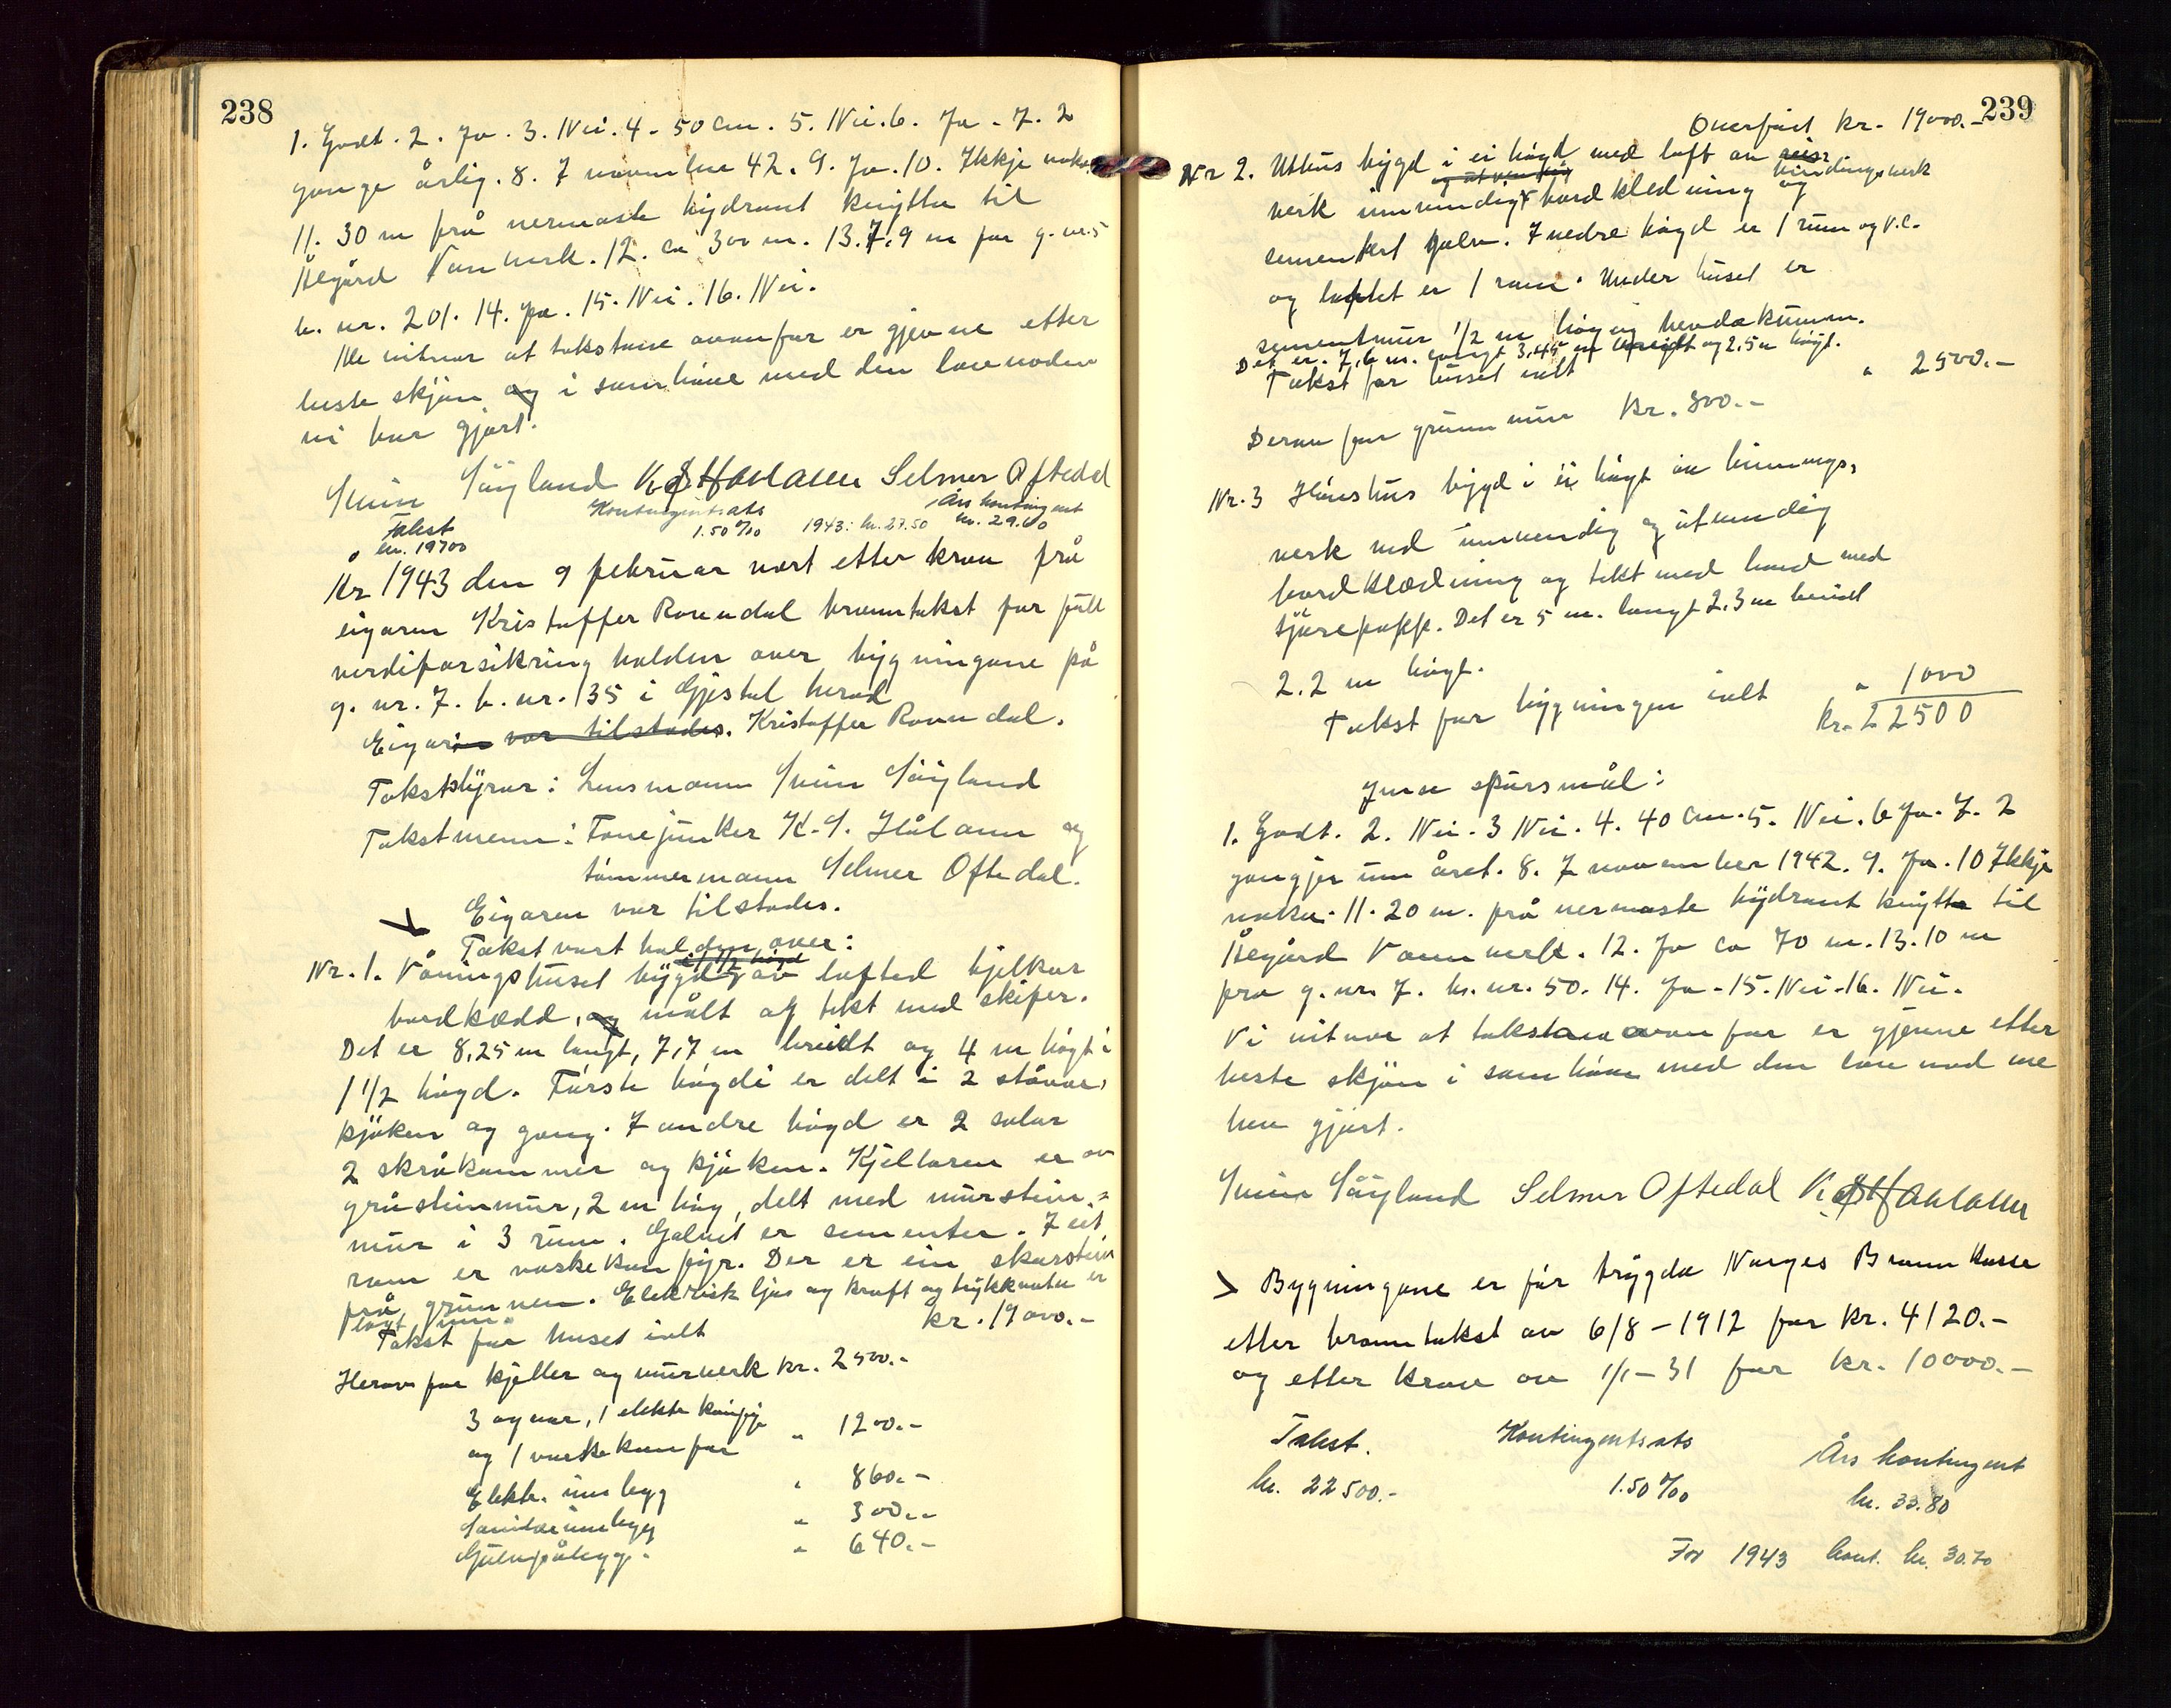 238
1. Godt. 2. Ja. 3. Nei. 4. 50 cm. 5. Nei. 6. Ja. 7. 2
gonge årlig. 8. 7 november 42. 9. Ja. 10. Ikkje noko.
11. 30 m frå nermaste hydrant knytta til
Ålgård Vannverk. 12. ca 300 m. 13. 7,9 m for g.nr. 5
b.nr. 201. 14. Ja. 15. Nei. 16. Nei.
Me vitnar at takstane ovanfor er gjevne etter
beste skjøn og i samhøve med den lovnaden
vi har gjort.
Svein Søyland K. S. Haaland Selmer Oftedal
Takst Kontingentsats Års kontingent
kr. 19700 1.50 ‰ 1943: kr. 27.50 kr. 29.60
År 1943 den 9 februar vart etter krav frå
eigaren Kristoffer Rosendal branntakst for full
verdiforsikring halden over bygningane på
g.nr. 7. b.nr. 135 i Gjestal herad
Eigar: var tilstades. Kristoffer Rosendal.
Takststyrar: Lensmann Svein Søyland
Takstmenn: Fanejunker K. S. Håland og
tømmermann Selmer Oftedal.
Eigaren var tilstades.
Takst vart halden over:
i 1 1/2 høgd
Nr. 1. Våningshuset bygd av lafted bjelkar
bordkledd, og målt og tekt med skifer.
Det er 8,25 m langt, 7,7 m breidt og 4 m høgt i
1 1/2 høgd. Første høgdi er delt i 2 stover,
kjøken og gong. I andre høgd er 2 salar
2 skråkammer og kjøken. Kjellaren er av
gråsteinmur, 2 m høg, delt med murstein-
mur i 3 rum. Golvet er sementer. I eit
rom er vaskekomfyr. Der er ein skorstein
frå grunnen. Elektrisk ljos og kraft og trykkvatn er
lagt inn.
Takst for huset ialt kr. 19000.-
Herav for kjeller og murverk kr. 2500.-
3 ovnar, 1 elektr. komfyr
og 1 vaskekomfyr " 1200.-
Elektr. innlegg " 860.-
Sanitærinnlegg " 300.-
Gulvpålegg. " 640.-
239
Overført kr. 19000.-
Nr 2. Uthus bygd i ei høgd med loft av reis
og utvendig bindingsverk
verk innvendig bordkledning og
sementert golv. I nedre høgd er 1 rum og v.c.
og loftet er 1 rom. Under huset er
sementmur 1/2 m høg og hevdakumm.
Det er 7,6 m. langt 3,45 m breidt og 2,5 m høgt.
Takst for huset ialt " 2500.-
Derav for grunnmur kr. 300.-
Nr. 3 Hønshus bygd i ei høgt av binnings-
verk med innvendig og utvendig
bordklædning og tekt med bord med
tjærepapp. Det er 5 m. langt 2,3 m breidt
2.2 m høgt.
Takst for bygningen ialt " 1000
kr. 22500
Ymse spursmål:
1. Godt. 2. Nei. 3 Nei. 4. 40 cm. 5. Nei. 6 Ja. 7. 2
gongjer um året. 8. 7 november 1942. 9. Ja. 10 Ikkje
noko. 11. 20 m. frå nermaste hydrant knytta til
Ålgård Vannverk. 12. Ja ca 70 m. 13. 10 m
fra g.nr. 7. b.nr. 50. 14. Ja. 15. Nei. 16. Nei.
Vi vitnar at takstane ovanfor er gjevne etter
beste skjøn i samhøve med den lovnad me
hev gjort.
Svein Søyland Selmer Oftedal K. S. Haaland
Bygningane er før trygda Norges Brannkasse
etter branntakst av 6/8 - 1912 for kr. 4120.-
og etter krav av 1/1 - 31 for kr. 10000.-
Takst. Kontingentsats Års kontingent
kr. 22500.- 1.50 ‰ kr. 33.80
For 1943 kont. kr. 30.70